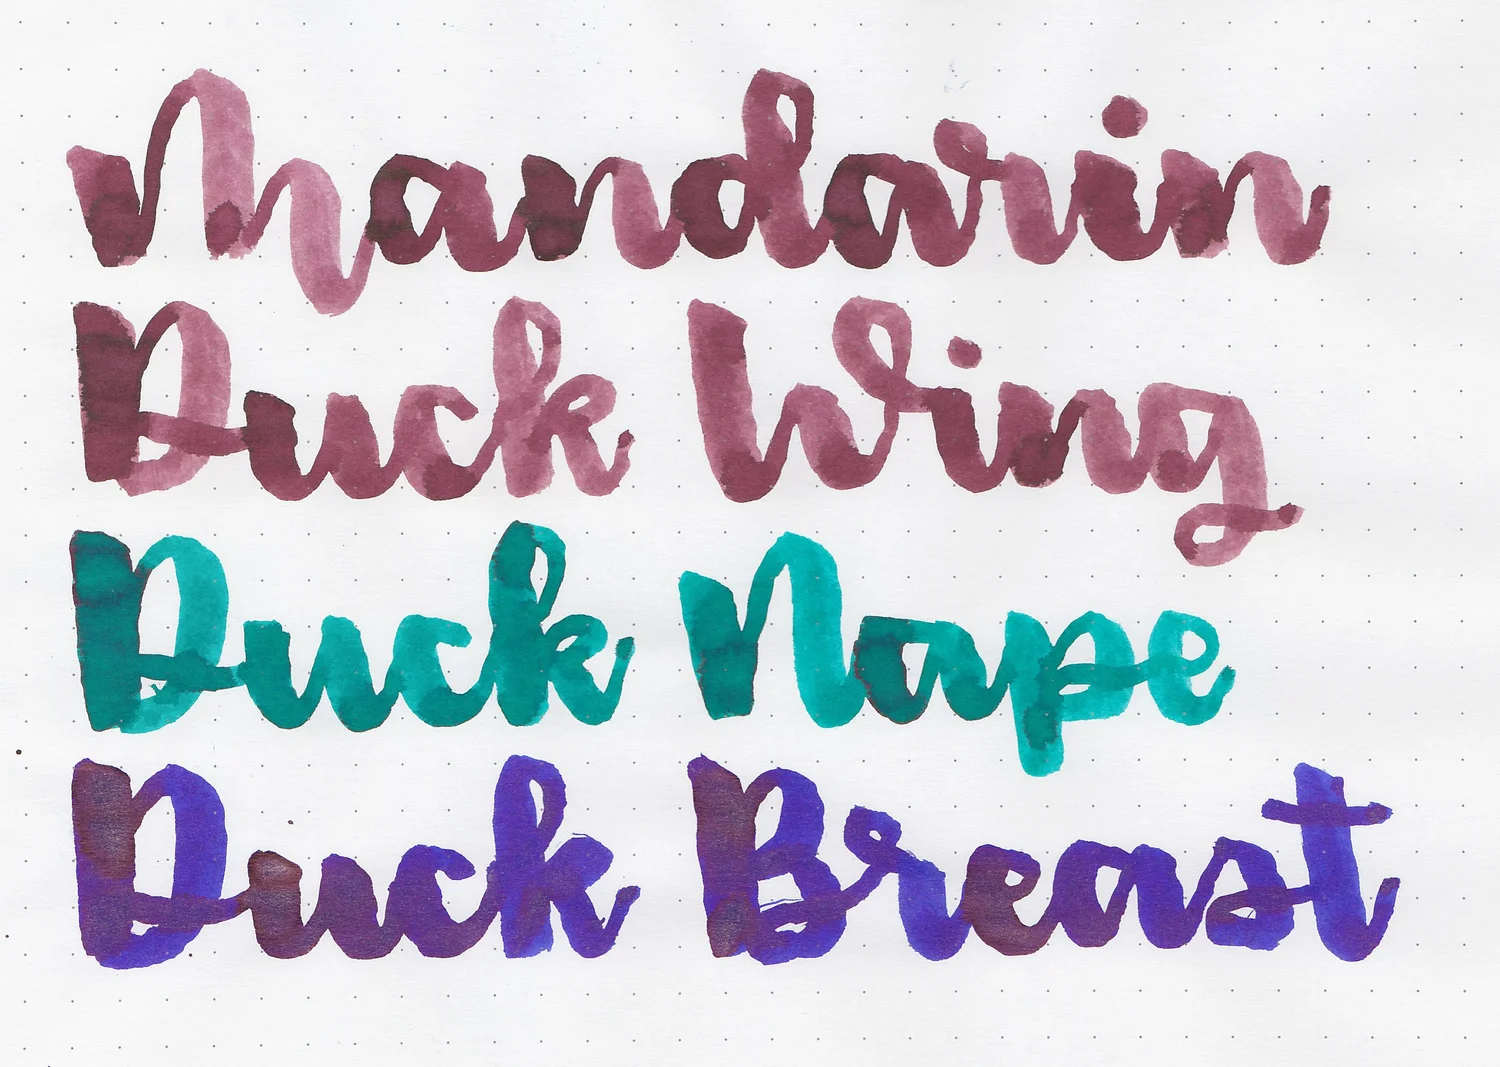 Mandarin
Duck Wing
Duck Nape
Duck Breast